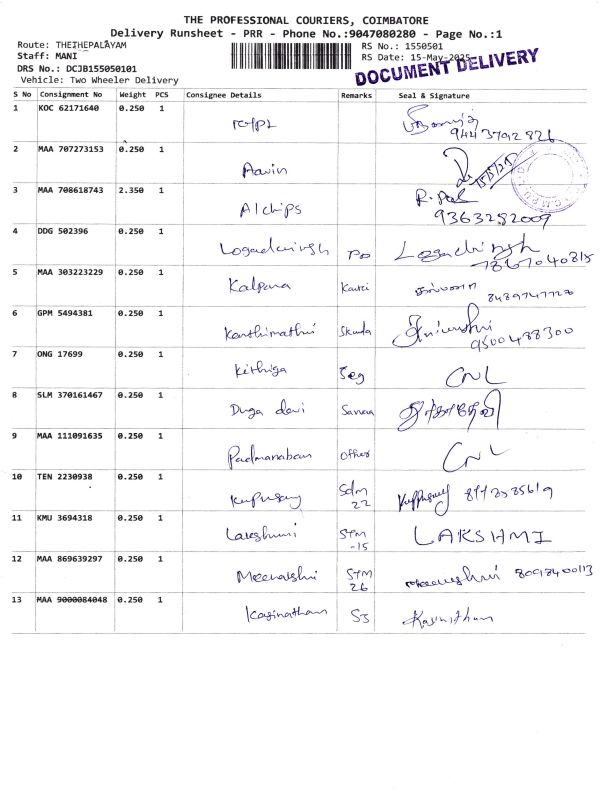 THE PROFESSIONAL COURIERS, COIMBATORE
Delivery Runsheet - PRR - Phone No.:9047080280 - Page No.:1
Route: THETHEPALAYAM
Staff: MANI
DRS No.: DCJB155050101
Vehicle: Two Wheeler Delivery
RS No.: 1550501
RS Date: 15-May-2025
DOCUMENT DELIVERY
S No Consignment No Weight PCS Consignee Details Remarks Seal & Signature
1 KOC 62171640 0.250 1
9443792826
2 MAA 707273153 0.250 1 Aavin
15/5/25
3 MAA 708618743 2.350 1 A1chips R.Pal
9363252009
4 DDG 502396 0.250 1
7867040815
5 MAA 303223229 0.250 1 Kalpana
8489747720
6 GPM 5494381 0.250 1 Kanthimathi
9500488300
7 ONG 17699 0.250 1 Kithiga CNL
8 SLM 370161467 0.250 1 Durga devi
9 MAA 111091635 0.250 1 Padmanaban CNL
10 TEN 2230938 0.250 1 Kupusamy Sdm 22
11 KMU 3694318 0.250 1 STM -15 LAKSHMI
12 MAA 869639297 0.250 1 Meenakshi STM 26
13 MAA 9000084048 0.250 1 Kasinathan S3 Kasinathan